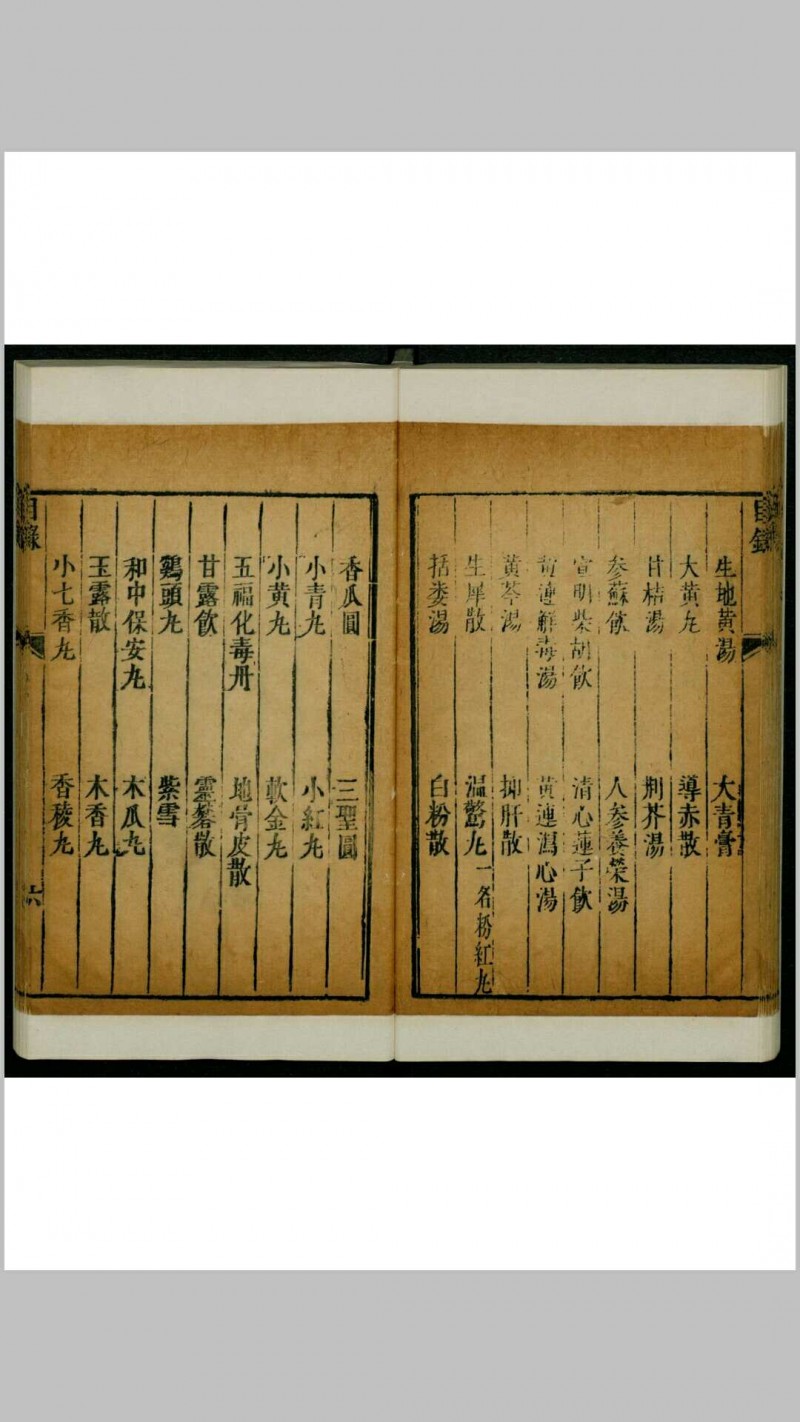 目錄
生地黄湯 大青膏
大黄九 導赤散
甘桔湯 荆芥湯
参蘇飲 人参養榮湯
宣明柴胡飲 清心蓮子飲
黄連解毒湯 黄連瀉心湯
黄芩湯 抑肝散
生犀散 温驚九一名粉紅九
括蒌湯 白粉散
香瓜圓 三聖圓
小青九 小紅九
小黄九 軟金九
五福化毒丹 地骨皮散
甘露飲 靈礬散
鷄頭九 紫雪
和中保安九 木瓜九
玉露散 木香九
小七香九 香稜九
目錄 六